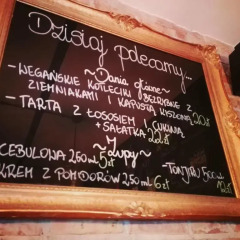 Dzisiaj polecamy...
~Dania główne~
-WEGAŃSKIE KOTLECIKI BEZRYBNE Z
ZIEMNIAKAMI I KAPUSTĄ KISZONĄ 20zł
-TARTA Z ŁOSOSIEM I CUKINIĄ
+SAŁATKA 22zł
~Zupy~
CEBULOWA 250ml 5zł
KREM Z POMIDORÓW 250ml 6zł
-TONJIRU 500ml
12zł